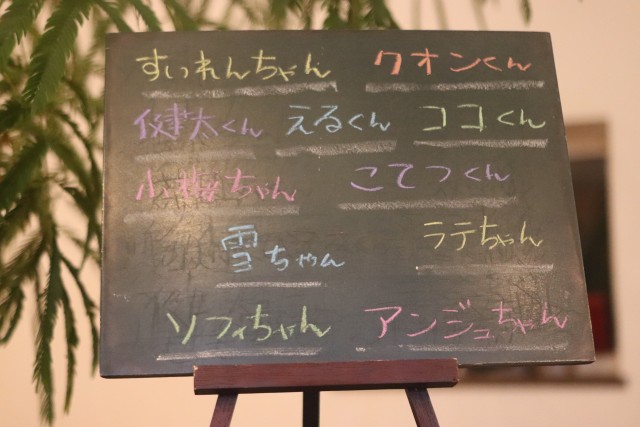 すいれんちゃん クオンくん
健太くん えるくん ココくん
小梅ちゃん こてつくん
雪ちゃん ラテちゃん
ソフィちゃん アンジュちゃん